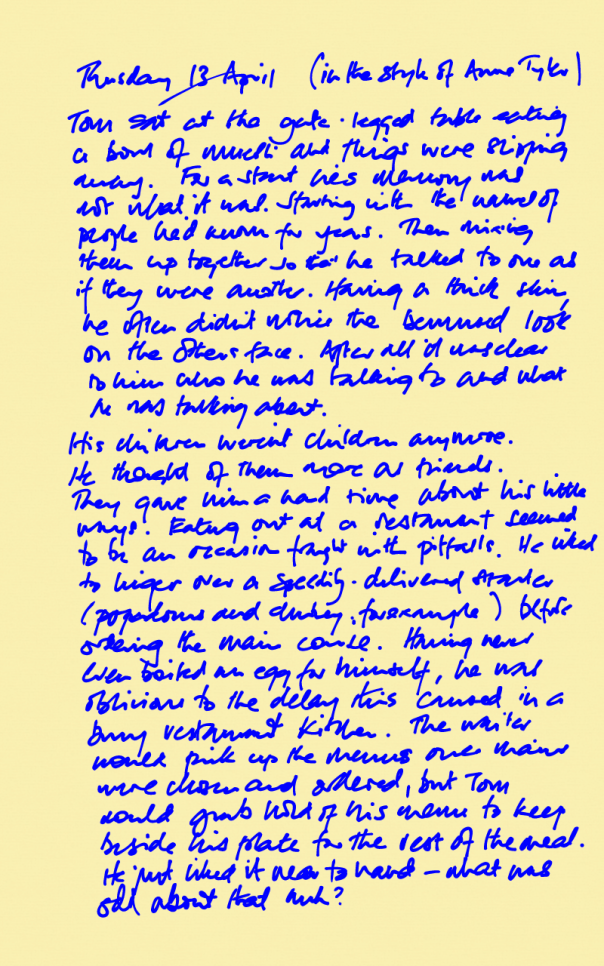 Thursday 13 April (in the style of Anne Tyler)
Tom sat at the gate-legged table eating
a bowl of muesli and things were slipping
away. For a start his memory was
not what it was. Starting with the names of
people he'd known for years. Then mixing
them up together so that he talked to one as
if they were another. Having a thick skin,
he often didn't notice the bemused look
on the other's face. After all it was clear
to him who he was talking to and what
he was talking about.
His children weren't children anymore.
He thought of them more as friends.
They gave him a hard time about his little
ways. Eating out at a restaurant seemed
to be an occasion fraught with pitfalls. He liked
to linger over a speedily-delivered starter
(popadoms and chutney, for example) before
ordering the main course. Having never
even boiled an egg for himself, he was
oblivious to the delay this caused in a
busy restaurant kitchen. The waiter
would pick up the menus once mains
were chosen and ordered, but Tom
would grab hold of his menu to keep
beside his plate for the rest of the meal.
He just liked it near to hand – what was
odd about that